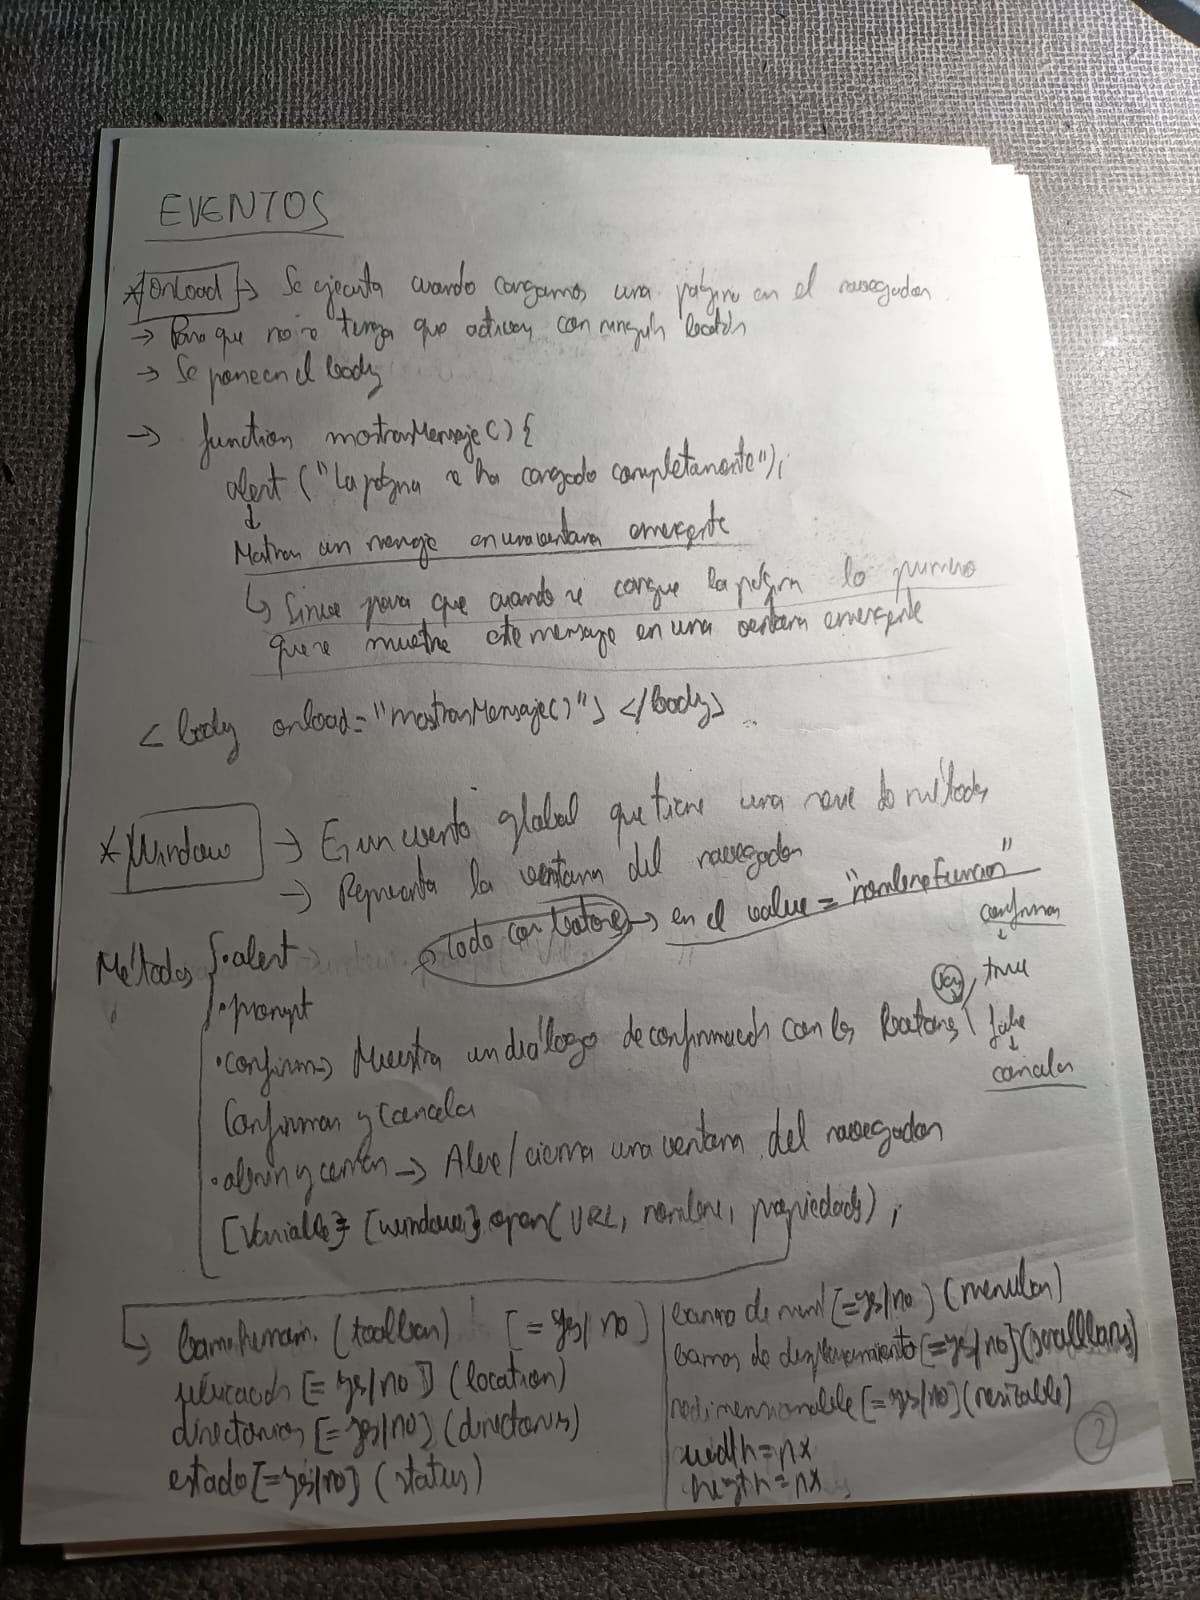 EVENTOS
* onload → Se ejecuta cuando cargamos una página en el navegador
→ Para que no se tenga que activar con ningún botón
→ Se pone en el body
→ function mostrarMensaje() {
alert ("La página se ha cargado completamente");
↓
Mostrar un mensaje en una ventana emergente
↳ Sirve para que cuando se cargue la página lo primero
que se muestre este mensaje en una ventana emergente
< body onload="mostrarMensaje()"> </body>
* Window → Es un evento global que tiene una serie de métodos
→ Representa la ventana del navegador
todo con botones → en el value = "nombreFuncion"
Métodos
• alert
• prompt
• confirm → Muestra un diálogo de confirmación con los botones
confirmar
↓
true
false
↓
cancelar
Confirmar y Cancelar
• abrir y cerrar → Abre/cierra una ventana del navegador
[Variable] = [window].open(URL, nombre, propiedades);
↳ barra herram. (toolbar) [=yes/no]
ubicación [=yes/no] (location)
directorios [=yes/no] (directories)
estado [=yes/no] (status)
barra de menú [=yes/no] (menubar)
barras de desplazamiento [=yes/no] (scrollbars)
redimensionable [=yes/no] (resizable)
width = px
height = px
2